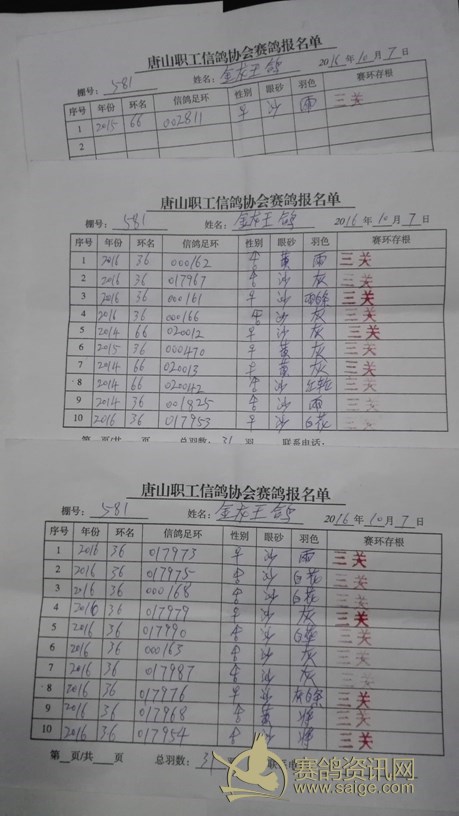 唐山职工信鸽协会赛鸽报名单
棚号: 581 姓名: 金龙王鸽 2016年10月7日
序号 年份 环名 信鸽足环 性别 眼砂 羽色 赛环存根
1 2015 66 002811 沙 雨 三关
2
唐山职工信鸽协会赛鸽报名单
棚号: 581 姓名: 金龙王鸽 2016年10月7日
序号 年份 环名 信鸽足环 性别 眼砂 羽色 赛环存根
1 2016 36 000162 黄 雨 三关
2 2016 36 017967 沙 灰 三关
3 2016 36 000161 沙 三关
4 2016 36 000166 沙 灰 三关
5 2014 66 020012 沙 灰 三关
6 2015 36 000470 黄 灰 三关
7 2014 66 020013 黄 灰 三关
8 2014 66 020042 沙 三关
9 2014 36 001825 沙 雨 三关
10 2016 36 017953 沙 白花 三关
第 页/共 页 总羽数: 31 羽 联系电话:
唐山职工信鸽协会赛鸽报名单
棚号: 581 姓名: 金龙王鸽 2016年10月7日
序号 年份 环名 信鸽足环 性别 眼砂 羽色 赛环存根
1 2016 36 017973 沙 雨 三关
2 2016 36 017975 沙 白花 三关
3 2016 36 000168 沙 白花 三关
4 2016 36 017979 沙 灰 三关
5 2016 36 017990 沙 三关
6 2016 36 000163 沙 灰 三关
7 2016 36 017987 沙 灰 三关
8 2016 36 017976 沙 三关
9 2016 36 017968 黄 三关
10 2016 36 017954 沙 三关
第 页/共 页 总羽数: 31 联系电
赛鸽资讯网
www.saige.com